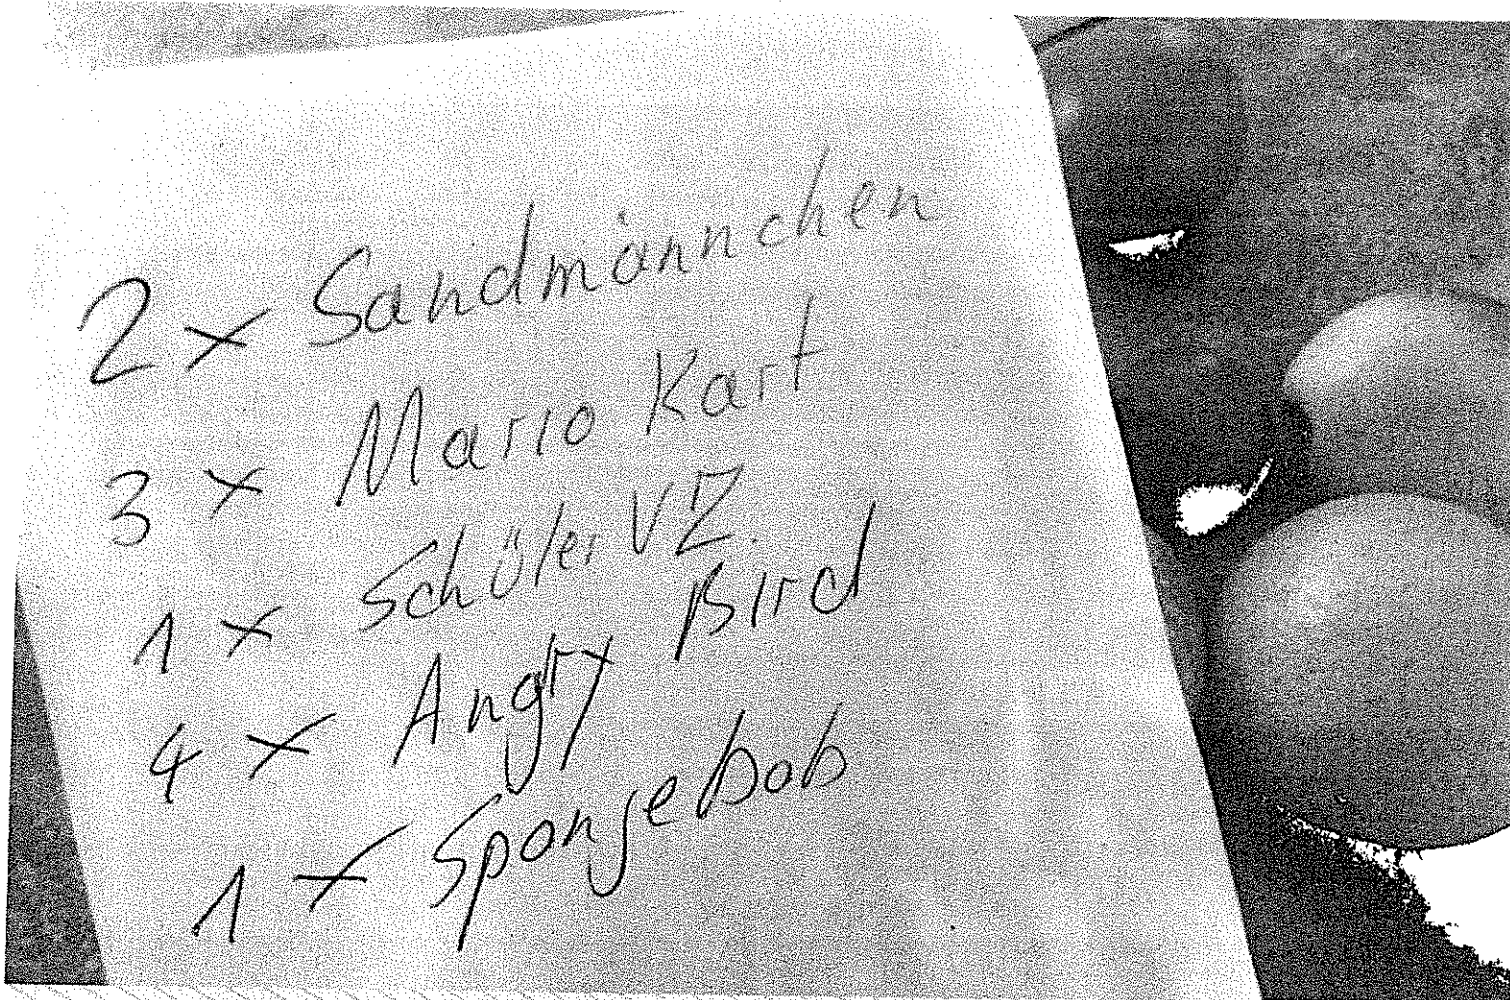 2 x Sandmännchen
3 x Mario Kart
1 x Schüler VZ.
4 x Angry Bird
1 x Spongebob